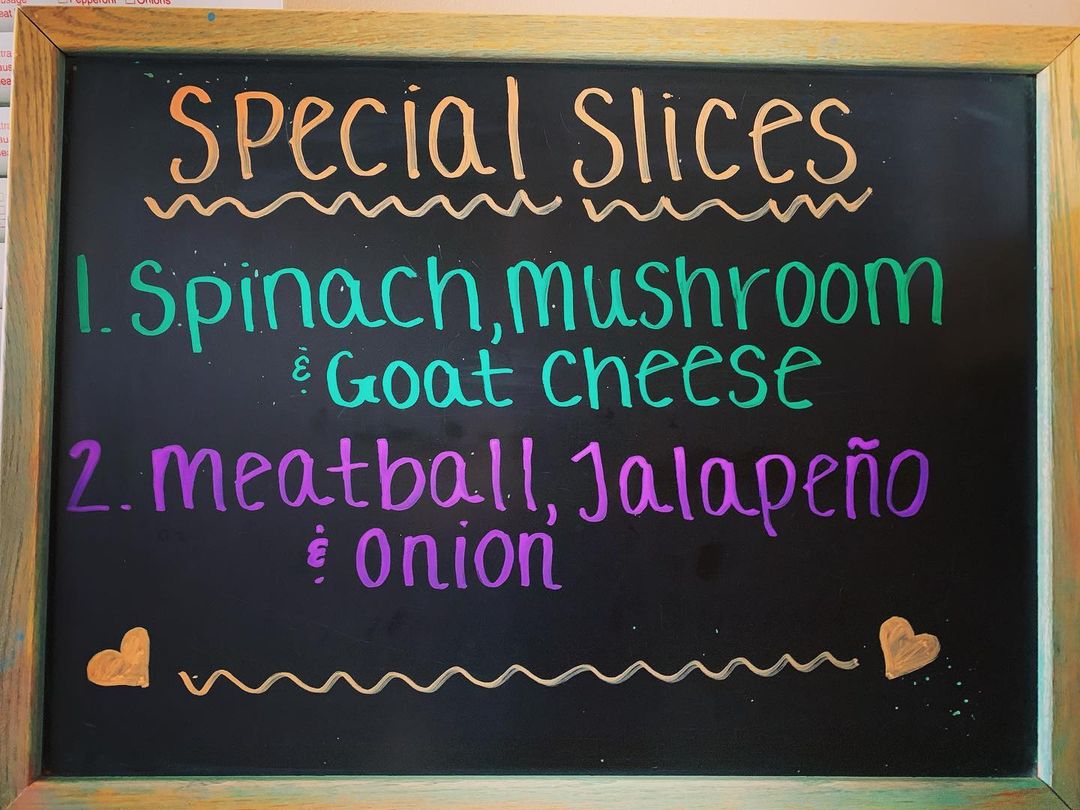 Pepperoni Onions
Special Slices
1. Spinach, mushroom
& Goat cheese
2. meatball, Jalapeño
& onion